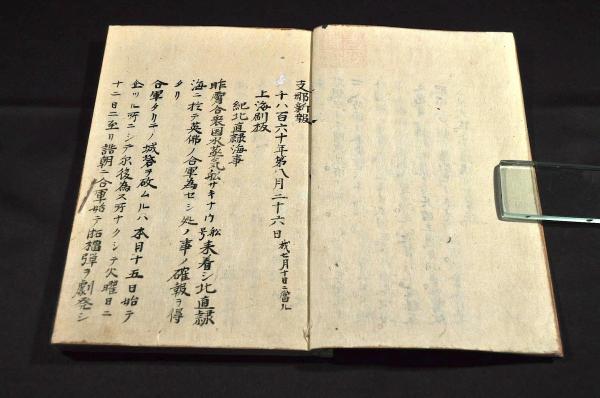 支那新報
千八百六十年第八月二十六日 我七月十日ニ當ル
上海刷板
紀北直隷海事
昨宵合衆国水蒸気舩サキナウ舩号来着シ北直隷
海ニ於テ英佛ノ合軍為セシ処ノ事ノ確報ヲ得
タリ
合軍タリクノ城砦ヲ攻ムルハ本月十五日始テ
企ツル所ニシテ尓後為ス所ナクシテ火曜日ニ
十二日ニ至リ諧朝ニ合軍始テ柘榴弾ヲ劇発シ